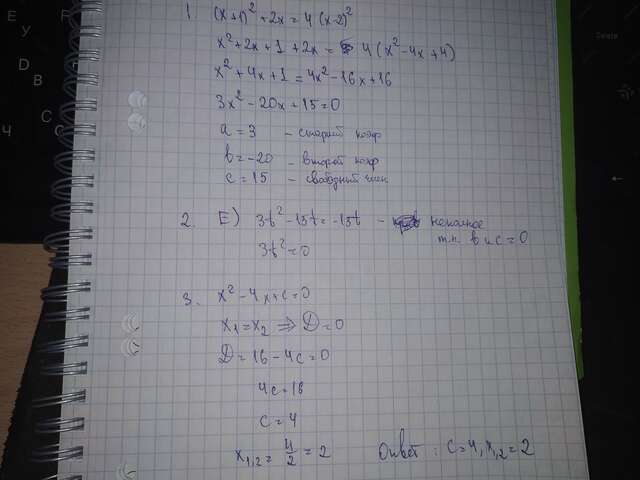 1. (x+1)² + 2x = 4(x-2)²
x² + 2x + 1 + 2x = 4(x² - 4x + 4)
x² + 4x + 1 = 4x² - 16x + 16
3x² - 20x + 15 = 0
a = 3 - старший коэф
b = -20 - второй коэф
c = 15 - свободный член
2. E) 3t² - 13t = -13t - неполное
т.к. b и c = 0
3t² = 0
3. x² - 4x + c = 0
x₁ = x₂ ⇒ D = 0
D = 16 - 4c = 0
4c = 16
c = 4
x₁,₂ = 4/2 = 2 Ответ: c = 4, x₁,₂ = 2